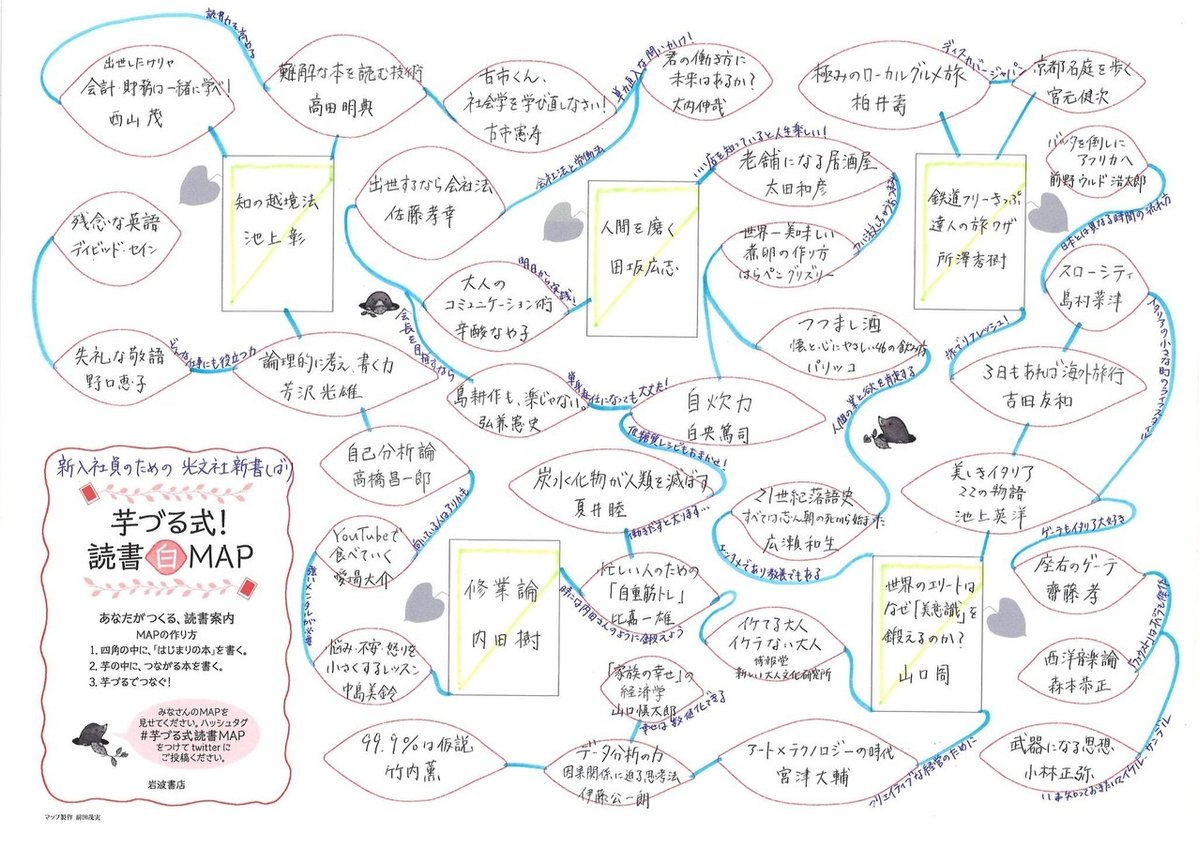 読書力を高める
出世したけりゃ
会計・財務は一緒に学べ!
西山 茂
難解な本を読む技術
高田明典
古市くん、
社会学を学び直しなさい!
古市憲寿
単刀直入な問いかけ!
君の働き方に
未来はあるか?
大内伸哉
極みのローカルグルメ旅
柏井壽
ディスカバージャパン
京都名庭を歩く
宮元健次
知の越境法
池上彰
出世するなら会社法
佐藤孝幸
会社法と労働法
人間を磨く
田坂広志
いい店を知っていると人生楽しい!
老舗になる居酒屋
太田和彦
世界一美味しい
煮卵の作り方
はらぺこグリズリー
鉄道フリーきっぷ
達人の旅ワザ
所澤秀樹
バッタを倒しに
アフリカへ
前野ウルド浩太郎
日本とは異なる時間の流れ方
スローシティ
島村菜津
残念な英語
デイビッド・セイン
大人の
コミュニケーション術
辛酸なめ子
つつまし酒
懐と心にやさしい46の飲み方
パリッコ
旅でリフレッシュ!
3日もあれば海外旅行
吉田友和
失礼な敬語
野口恵子
どんな仕事にも役立つ力
論理的に考え、書く力
芳沢光雄
会長を目指すなら
島耕作も、楽じゃない。
弘兼憲史
単身赴任になっても大丈夫!
自炊力
白央篤司
低糖質レシピもおまかせ!
人間の業と欲を肯定する
自己分析論
高橋昌一郎
炭水化物が人類を滅ぼす
夏井睦
21世紀落語史
すべては志ん朝の死から始まった
広瀬和生
美しきイタリア
22の物語
池上英洋
ゲーテもイタリア大好き
YouTubeで
食べていく
愛場大介
向いている人はアリかも
修業論
内田樹
働きだすと太ります…
忙しい人のための
「自重筋トレ」
比嘉一雄
時には内田さんのように鍛えよう
エンタメであり教養でもある
世界のエリートは
なぜ「美意識」を
鍛えるのか?
山口周
座右のゲーテ
齋藤孝
悩み・不安・怒りを
小さくするレッスン
中島美鈴
イケてる大人
イケテナイ大人
博報堂
新しい大人文化研究所
「家族の幸せ」の
経済学
山口慎太郎
幸せは数値化できる
西洋音楽論
森本恭正
99.9%は仮説
竹内薫
データ分析の力
因果関係に迫る思考法
伊藤公一朗
アート×テクノロジーの時代
宮津大輔
クリエイティブな経営のために
武器になる思想
小林正弥
いま知っておきたいマイケル・サンデル
新入社員のための 光文社新書しばり
芋づる式!
読書 白 MAP
あなたがつくる、読書案内
MAPの作り方
1. 四角の中に、「はじまりの本」を書く。
2. 芋の中に、つながる本を書く。
3. 芋づるでつなぐ!
みなさんのMAPを
見せてください。ハッシュタグ
#芋づる式読書MAP
をつけてtwitterに
ご投稿ください。
岩波書店
マップ製作 前田茂実